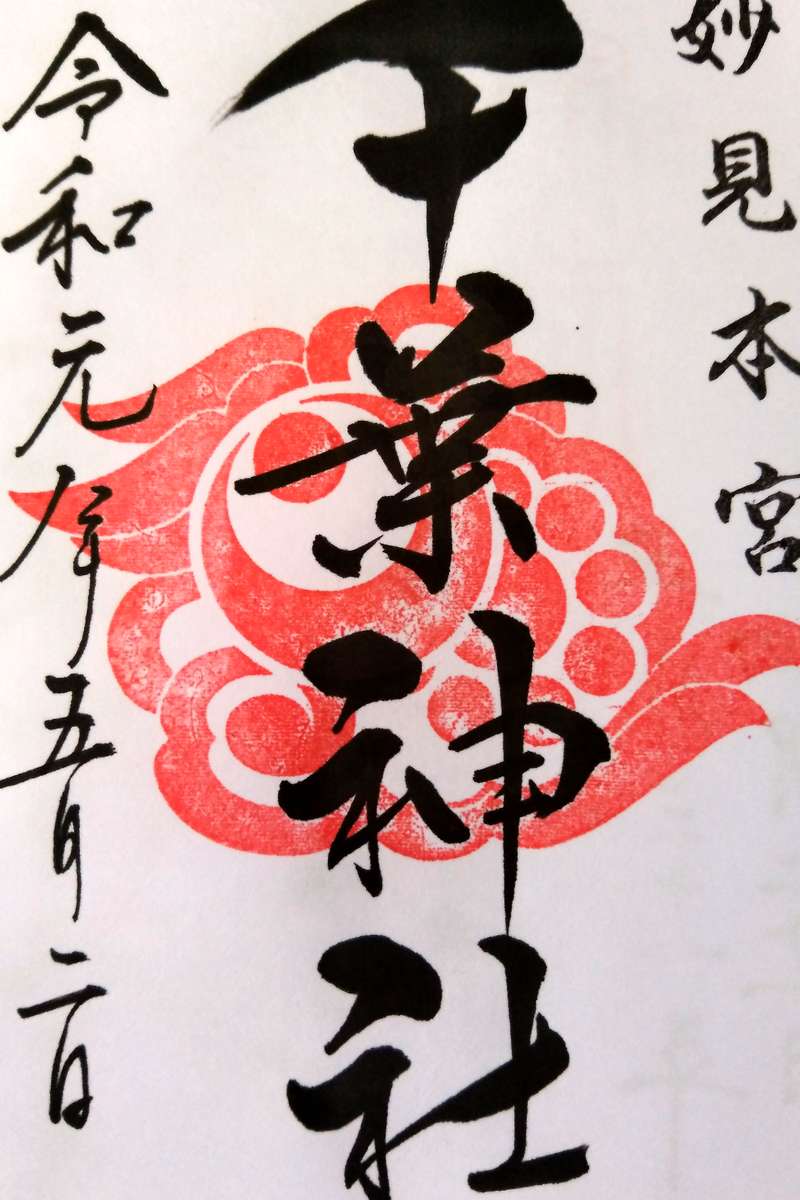 妙見本宮
千葉神社
令和元年五月二日